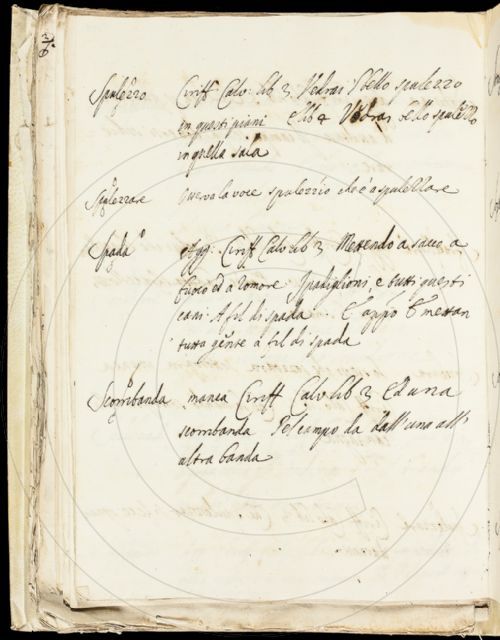 Spulezzo Ciriff Calv: lib 3. Vedrai sbello spulezzo
in questi piani e lib 4 Vedrai bello spulezzo
in quella sala
Spulezzare la voce spulezzio che è a spulezzare
Spada Agg: Ciriff Calv lib 3 Mettendo a sacco a
fuoco ed a romore I padiglioni, e tutti questi
cani A fil di spada E app.o E mettan
tutta gente a fil di spada
Scombanda manca Ciriff Calv lib 3 E d una
scombanda Pel campo da dall' una all'
altra banda